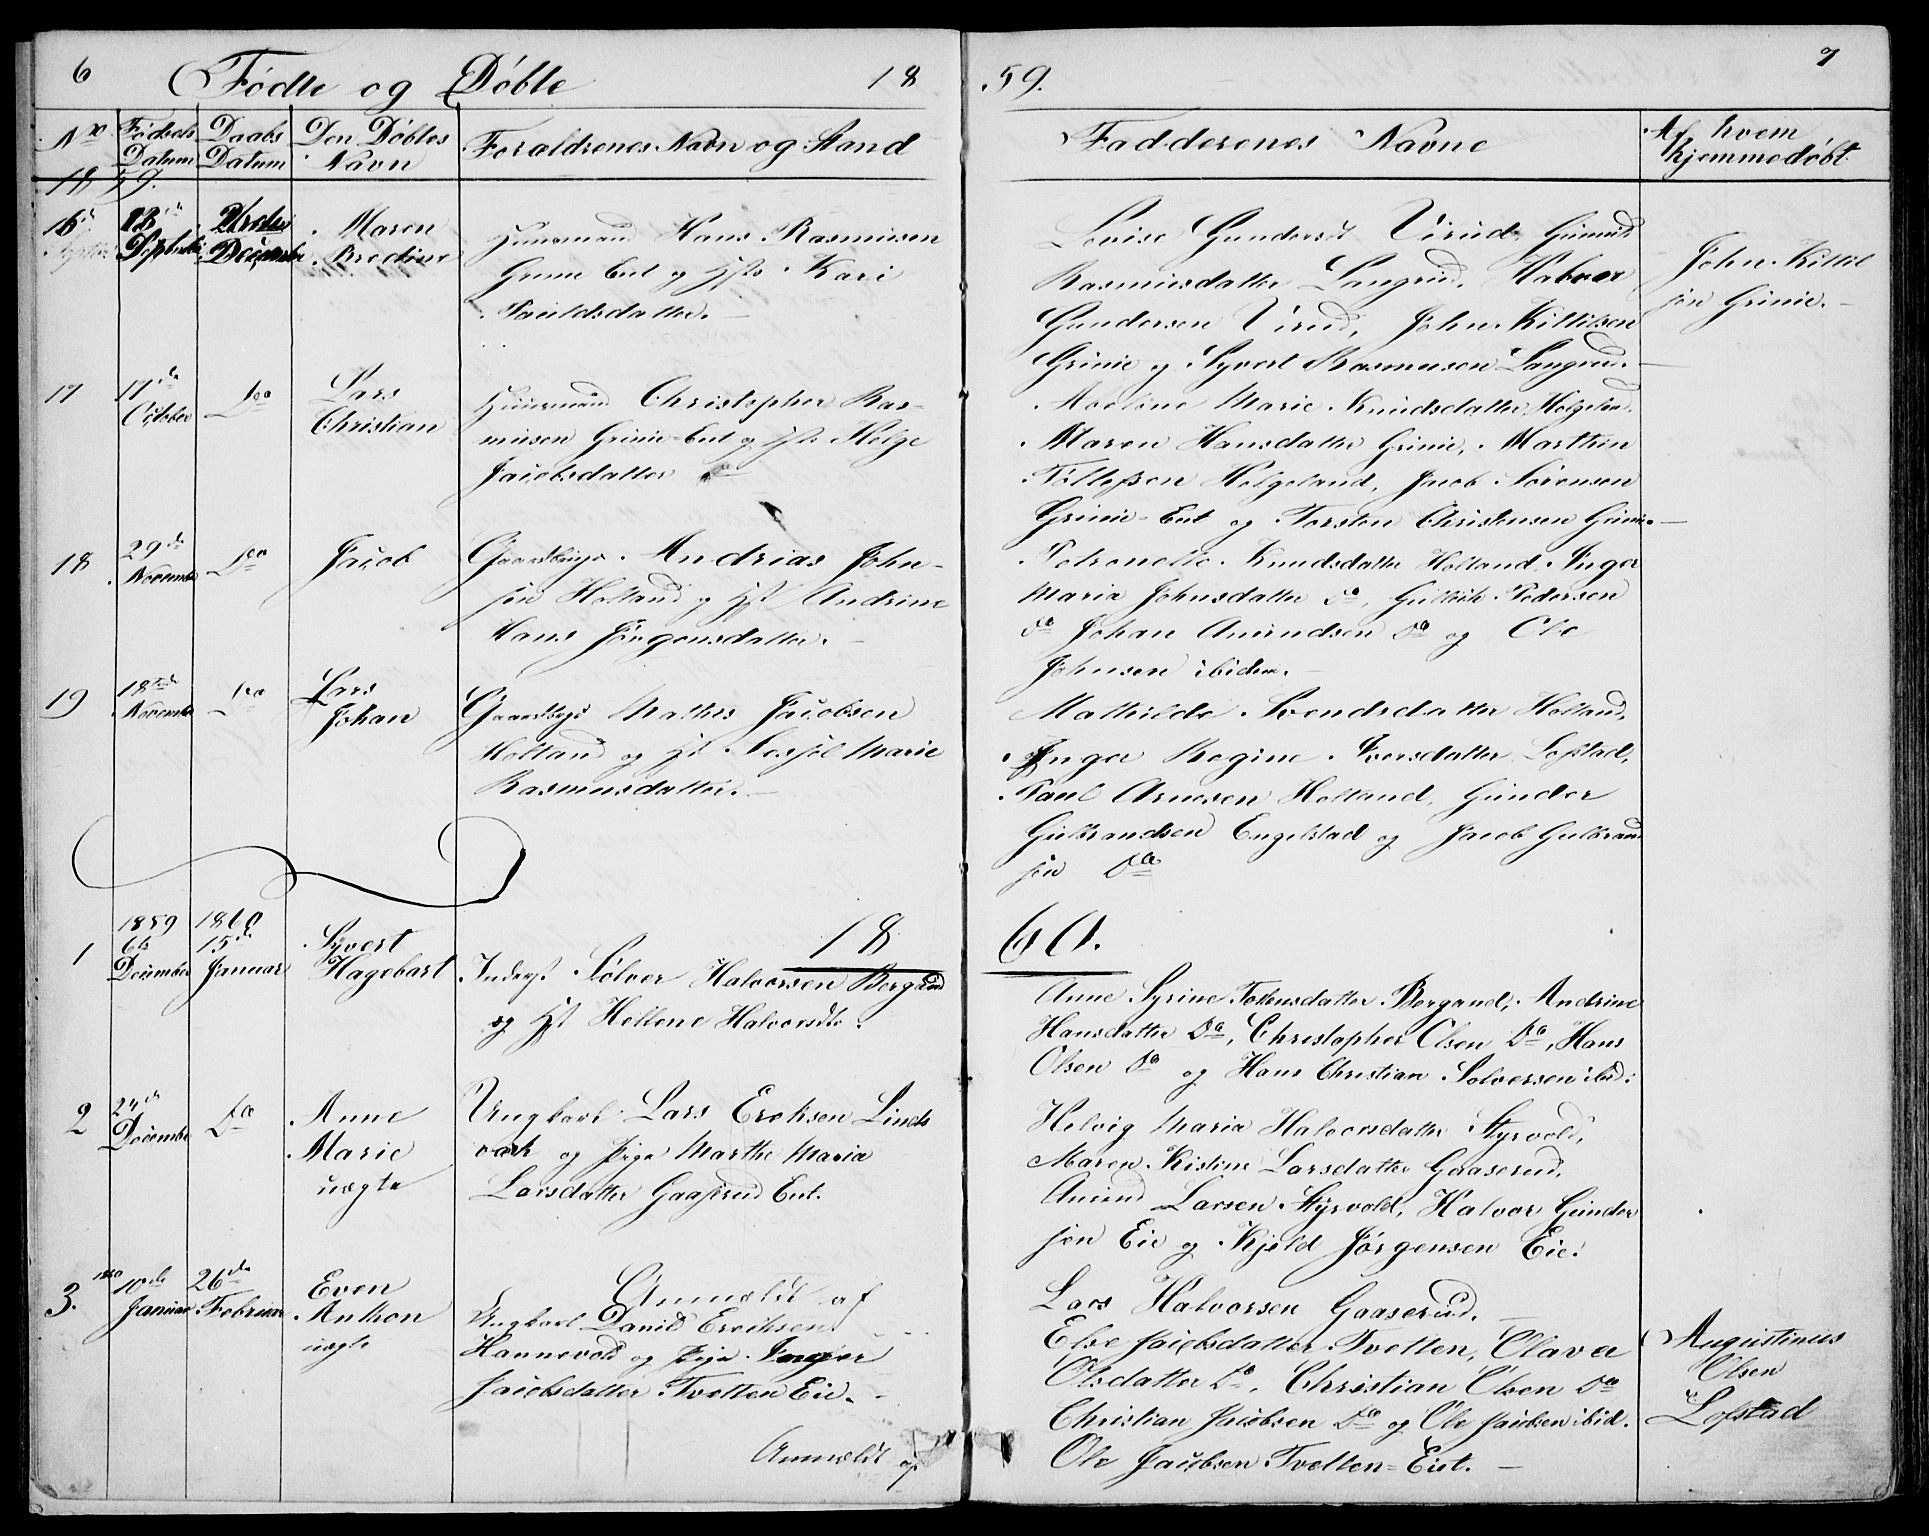 6
Fødte og Døbte
18
59.
7
No
Fødsels Datum
Daabs Datum
Den Døbtes Navn
Forældrenes Navn og Stand
Fadderenes Navne
Af hvem hjemmedøbt
1859.
16
December
Maren
Huusmand Hans Rasmusen
Grinie Eiet og Hst. Kari
Pauldsdatter. —
Lovise Gundersd Virud,
Rasmusdatter Langrud, Halvor
Gundersen Virud, John Kittilsen
Grinie og Syvert Rasmusen Langrud. —
John Kittil
sen Grinie. —
17
17de
October
Do
Lars
Christian
Huusmand Christopher Ras-
musen Grinie-Eiet og Hst. Helge
Jacobsdatter
Marie Knudsdatter Helgeland,
Maren Hansdatter Grinie, Marthin
Tollefsen Helgeland, Jacob Sørensen
Grinie-Eiet og Torsten Christensen Grinie —
18
29de
November
Do
Jacob
Gaardbruger Andrias John-
sen Holtand og Hst Andrine
Hans Jørgensdatter. —
Petronelle Knudsdatter Holtand, Inger
Maria Johnsdatter do, Gullich Pedersen
do Johan Amundsen do og Ole
Johnsen ibidem. —
19
18de
November
Do
Lars
Johan
Gaardbrgr Mathis Jacobsen
Holtand og Hst Marie
Rasmusdatter. —
Mathilde Svendsdatter Holtand,
Inger Regine Iversdatter Lofstad,
Paul Arnesen Holtand, Gunder
Gulbrandsen Engelstad og Jacob Gulbrand
sen Do
1860.
1
1859
6te
December
1860
15de
Januar
Syvert
Hagebart
Inderst Sølver Halvorsen Bergand
og Hst Hellene Halvorsdtr.
Anne Syrine Bergand, Andrine
Hansdatter Do, Christopher Olsen Do, Hans
Olsen do og Hans Christian Solversen ibid:
2
24de
December
Do
Anne
Marie
uægte
Ungkarl Lars Ereksen Linds
vark og Pige Marthe Maria
Larsdatter Gaaserud Eiet.
Helvig Maria Halvorsdatter Styrvold,
Maren Kistine Larsdatter Gaaserud,
Amund Larsen Styrvold, Halvor Gunder
sen Eie og Kjeld Jørgensen Eie.
Anmeldt af
Lars Halvorsen Gaaserud. —
3.
1860
10de
Januar
26de
Februar
Even
Anthon
uægte
Ungkarl David Ereiksen
Hannevold og Pige Inger
Jacobsdatter Tvetten Eie. —
Else Jacobsdatter Tvetten, Olava
Olsdatter Do, Christian Olsen Do
Christian Jacobsen Do og Ole Jacobsen ibid.
Augustinus
Olsen
Lofstad
Anmeldt af
Ole Jacobsen Tvetten-Eiet. —